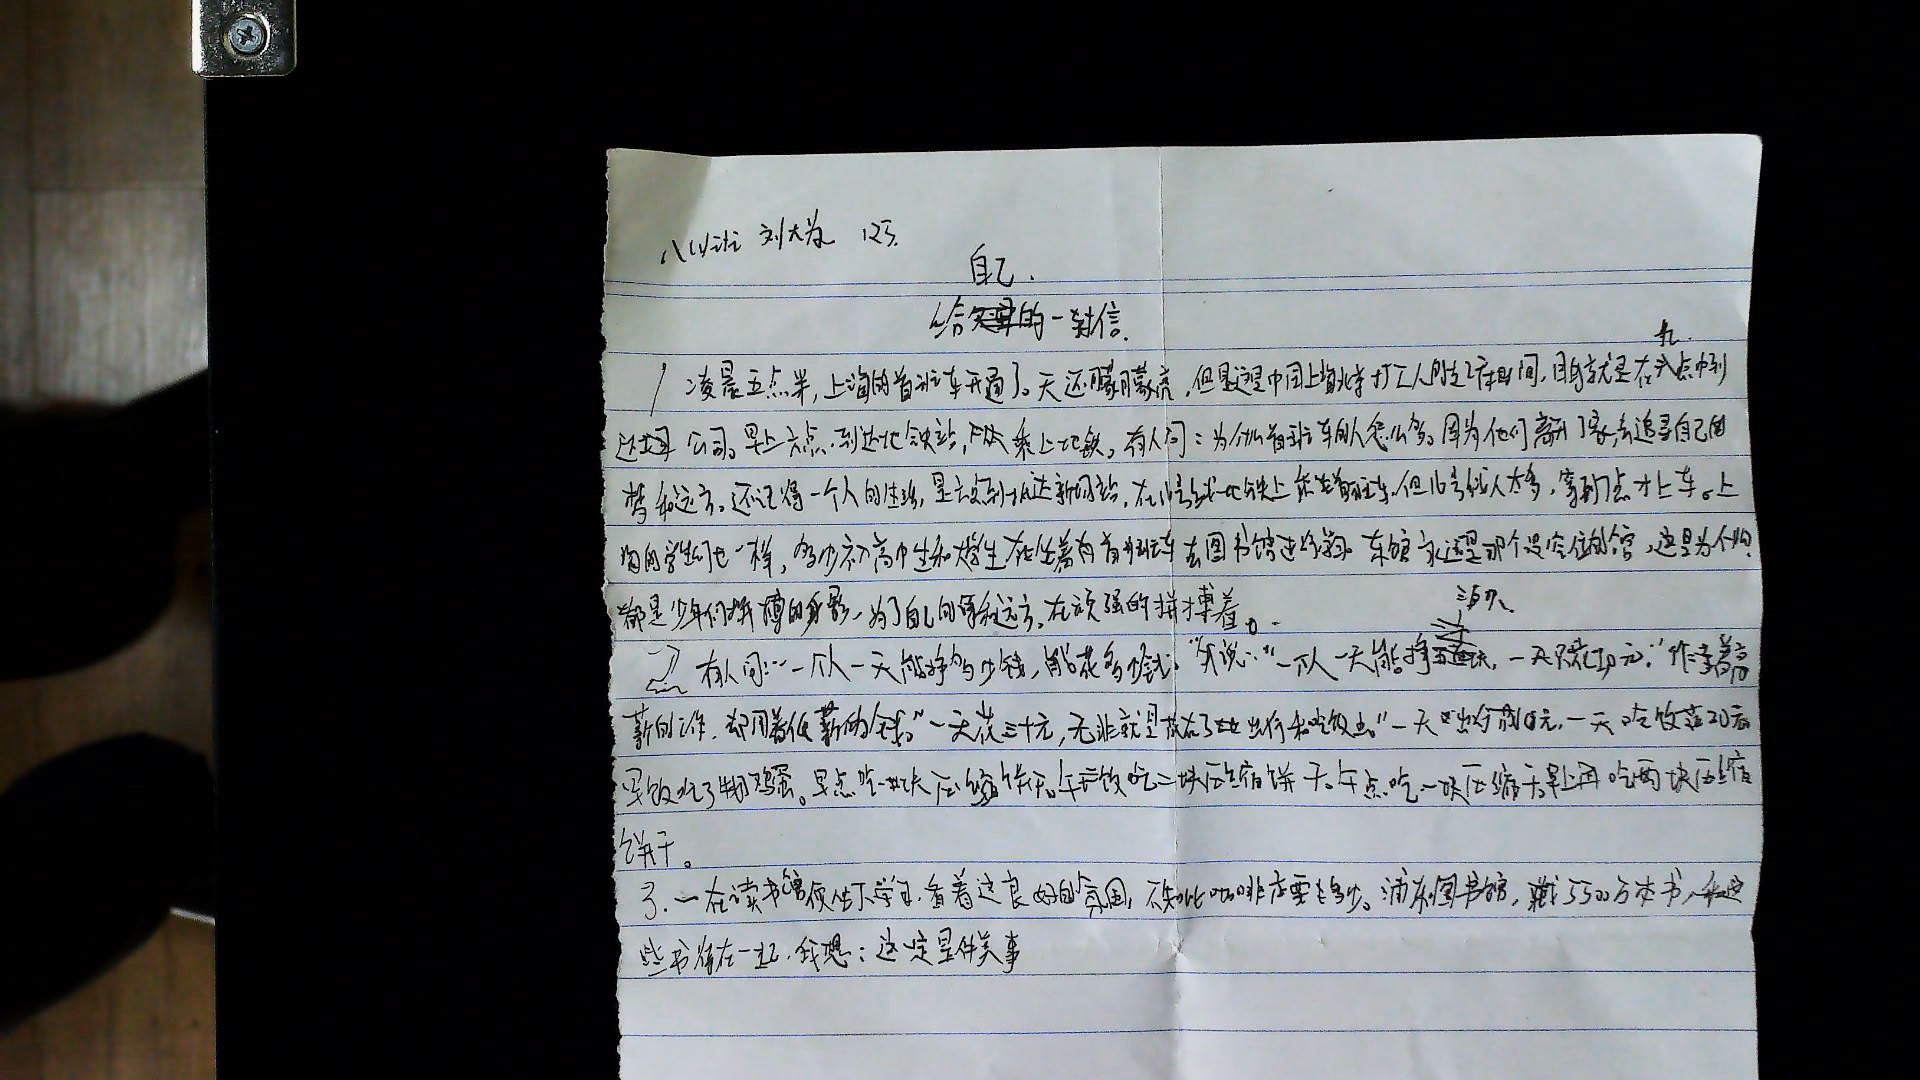 八(4)班 刘大为 125.
自己.
给的一封信.
九.
凌晨五点半,上海的首班车开通了。天还朦朦亮,但是这是中国上海打工人的时间,目的就是在点钟到
达公司。早上六点.到达地铁站,乘上地铁。有人问:为什么首班车的人怎么多。因为他们离开了家去追寻自己的
梦和远方。还记得一个人的生活,是六点到达新场站,在16号线地铁上坐首班车.但16号线人太多,等到7点才上车。上
海的学生们也一样,多少初高中生和大学生在坐着首班车去图书馆进行学习。永远是那个没空位的馆,这是为什么
都是少年们拼搏的身影,为了自己的梦和远方,在顽强的拼搏着。
2 有人问:“一个人一天能挣多少钱,能花多少钱。”我说:“一个人一天能挣,一天只花30元.”作着高
薪的工作,却用着低薪的钱。“一天花三十元,无非就是花在了出行和吃饭上。”一天出行10元,一天吃饭花20元
早饭吃了鸡蛋。早点吃一块压缩饼干。午饭吃二块压缩饼干。午点吃一块压缩干。晚上再吃两块压缩
饼干。
3.一在读书馆便坐下学习.看着这良好的氛围,不知比咖啡店要好多少。浦东图书馆,藏5500万本书,和这
些书待在一起.我想:这一定是件美事